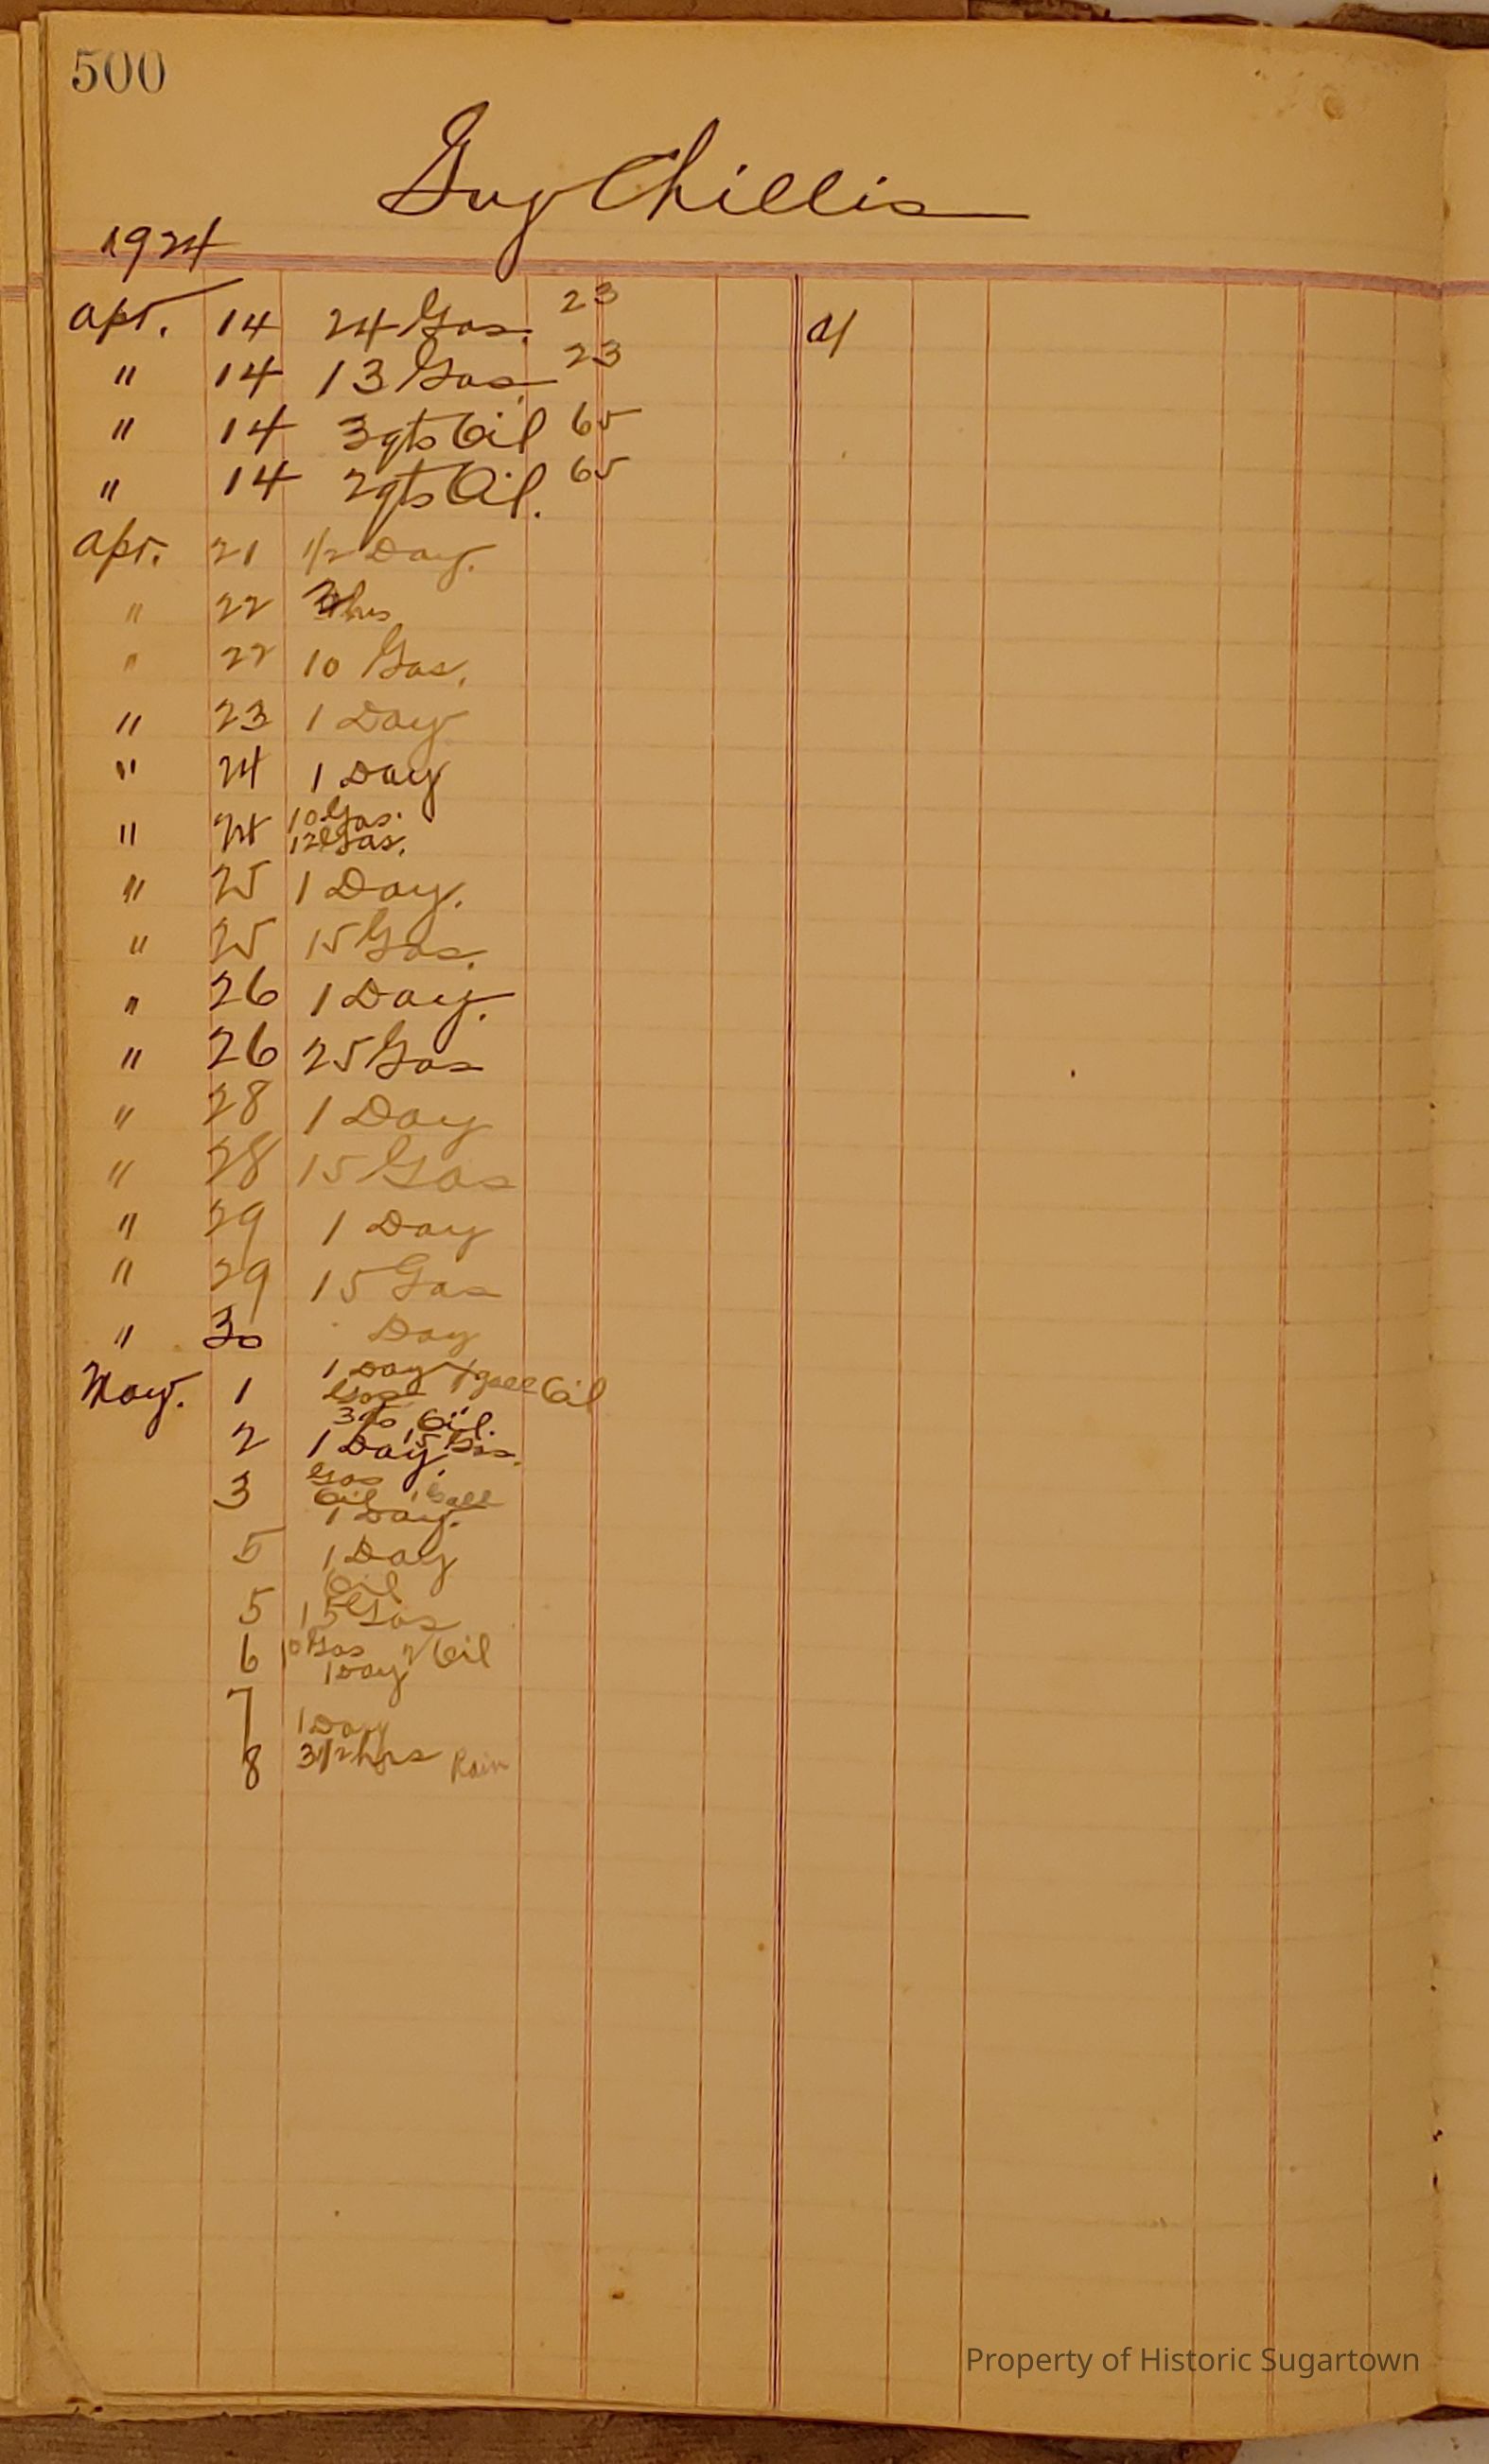 500
Guy Chillis
1924
Apr. 14 24 Gas. 23
" 14 13 Gas. 23
" 14 3 qts Oil 65
" 14 2 qts Oil. 65
Apr. 21 1/2 Day.
" 22 hrs
" 22 10 Gas.
" 23 1 Day
" 24 1 Day
" 24 10 Gas.
12 Gas.
" 25 1 Day.
" 25 15 Gas.
" 26 1 Day.
" 26 25 Gas
" 28 1 Day
" 28 15 Gas
" 29 1 Day
" 29 15 Gas
" 30 Day
May. 1 1 Day gall Oil
Gas
3 qts Oil.
2 1 Day 15 Gas.
Gas
3 Oil 1 Gall
1 Day.
5 1 Day
Oil
5 15 Gas
6 10 Gas Oil
1 Day
7 1 Day
8 3 1/2 hrs Rain
Property of Historic Sugartown